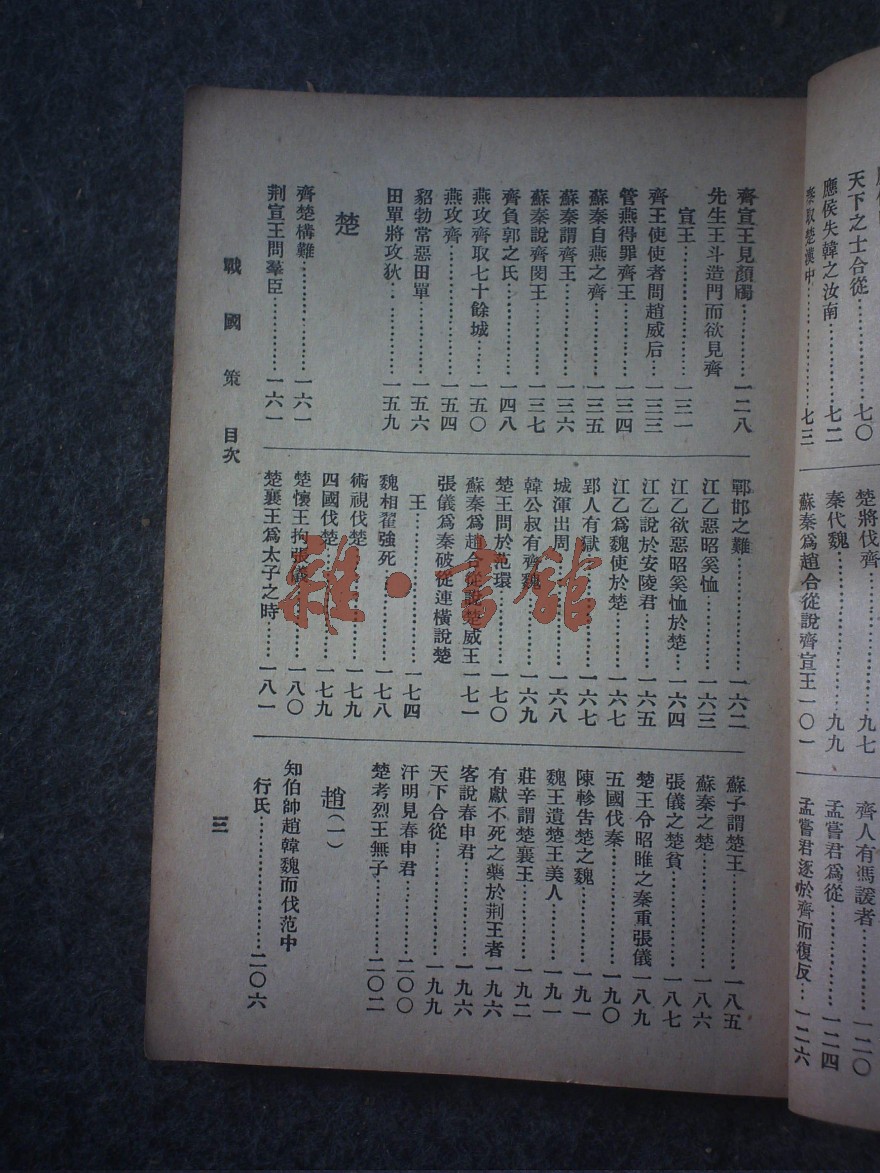 天下之士合從……七〇
應侯失韓之汝南……七二
秦取楚漢中……七三
楚將伐齊……九七
秦伐魏……九九
蘇秦爲趙合從說齊宣王一〇一
齊人有馮諼者……一二〇
孟嘗君爲從……一二四
孟嘗君逐於齊而復反……一二六
齊宣王見顏斶……一二八
先生王斗造門而欲見齊
宣王……一三一
齊王使使者問趙威后……一三三
管燕得罪齊王……一三四
蘇秦自燕之齊……一三五
蘇秦謂齊王……一三六
蘇秦說齊閔王……一三七
齊負郭之氏……一四八
燕攻齊取七十餘城……一五〇
燕攻齊……一五四
貂勃常惡田單……一五六
田單將攻狄……一五九
楚
齊楚構難……一六一
荆宣王問羣臣……一六一
鄲邯之難……一六二
江乙惡昭奚恤……一六三
江乙欲惡昭奚恤於楚……一六四
江乙說於安陵君……一六五
江乙爲魏使於楚……一六七
郢人有獄……一六七
城渾出周……一六八
韓公叔有齊魏……一六九
楚王問於范環……一七〇
蘇秦爲趙合從說楚威王一七一
張儀爲秦破從連橫說楚
王……一七四
魏相翟強死……一七八
術視伐楚……一七九
四國伐楚……一七九
楚懷王拘張儀……一八〇
楚襄王爲太子之時……一八一
蘇子謂楚王……一八五
蘇秦之楚……一八六
張儀之楚貧……一八七
楚王令昭睢之秦重張儀一八九
五國伐秦……一九〇
陳軫告楚之魏……一九一
魏王遺楚王美人……一九一
莊辛謂楚襄王……一九二
有獻不死之藥於荆王者一九六
客說春申君……一九六
天下合從……一九九
汗明見春申君……二〇〇
楚考烈王無子……二〇二
趙(一)
知伯帥趙韓魏而伐范中
行氏……二〇六
戰國策 目次
三
雜·書館